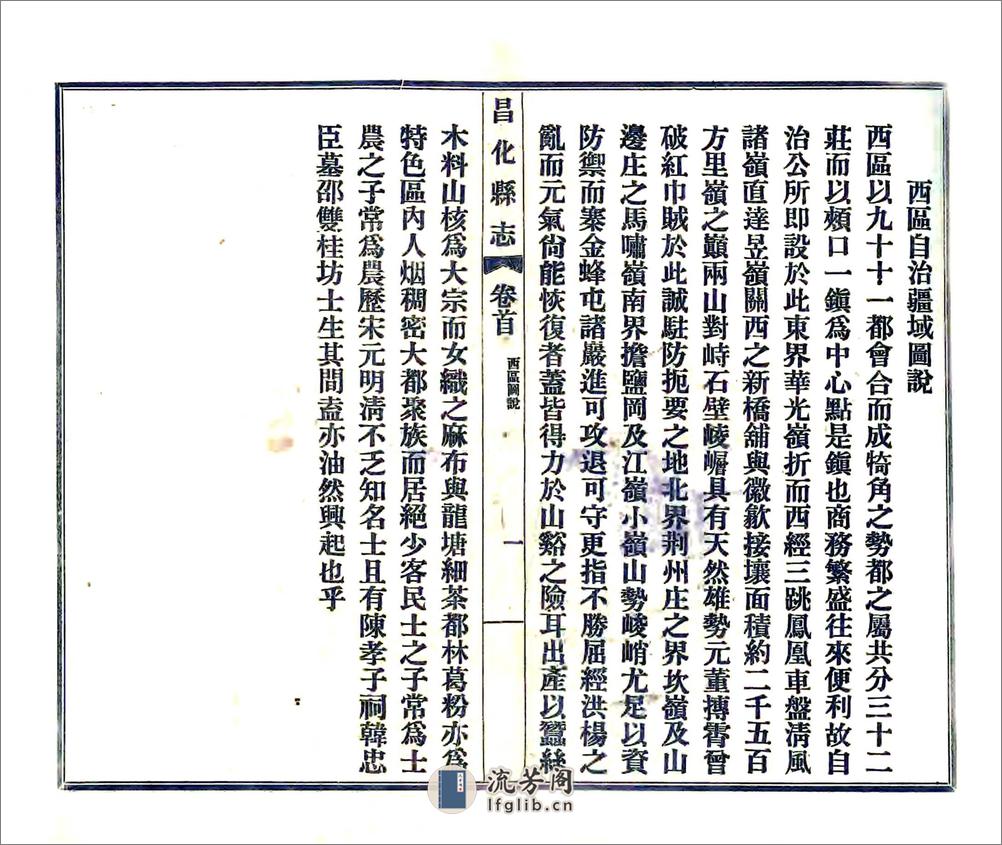 西區自治疆域圖說
西區以九十十一都會合而成犄角之勢都之屬共分三十二
莊而以頰口一鎭爲中心點是鎭也商務繁盛往來便利故自
治公所即設於此東界華光嶺折而西經三跳鳳凰車盤淸風
諸嶺直達昱嶺關西之新橋舖與徽歙接壤面積約二千五百
方里嶺之巔兩山對峙石壁崚嶒具有天然雄勢元董摶霄曾
破紅巾賊於此誠駐防扼要之地北界荆州庄之界坎嶺及山
邊庄之馬嘯嶺南界擔鹽岡及江嶺小嶺山勢峻峭尤足以資
防禦而寨金蜂屯諸巖進可攻退可守更指不勝屈經洪楊之
亂而元氣尙能恢復者蓋皆得力於山谿之險耳出產以蠶絲
昌化縣志
卷首
西區圖說
一
木料山核爲大宗而女織之麻布與龍塘細茶都林葛粉亦爲
特色區內人烟稠密大都聚族而居絕少客民士之子常爲士
農之子常爲農歷宋元明淸不乏知名士且有陳孝子祠韓忠
臣墓邵雙桂坊士生其間盍亦油然興起也乎
流芳阁
lfglib.cn